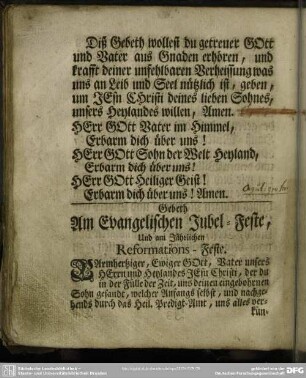 Diß Gebeth wollest du getreuer GOtt
und Vater aus Gnaden erhören, und
krafft deiner unfehlbaren Verheissung was
uns an Leib und Seel nützlich ist, geben,
um JEsu CHristi deines lieben Sohnes,
unsers Heylandes willen, Amen.
HErr GOtt Vater im Himmel,
Erbarm dich über uns!
HErr GOtt Sohn der Welt Heyland,
Erbarm dich über uns!
HErr GOtt Heiliger Geist!
Erbarm dich über uns! Amen.
Gebeth
Am Evangelischen Jubel-Feste,
Und am Jährlichen
Reformations-Feste.
BArmhertziger, Ewiger GOtt, Vater unsers
HErrn und Heylandes JEsu Christi, der du
in der Fülle der Zeit, uns deinen eingebohrnen
Sohn gesandt, welcher Anfangs selbst, und nachge-
hends durch das Heil. Predigt-Amt, uns alles ver-
kün-